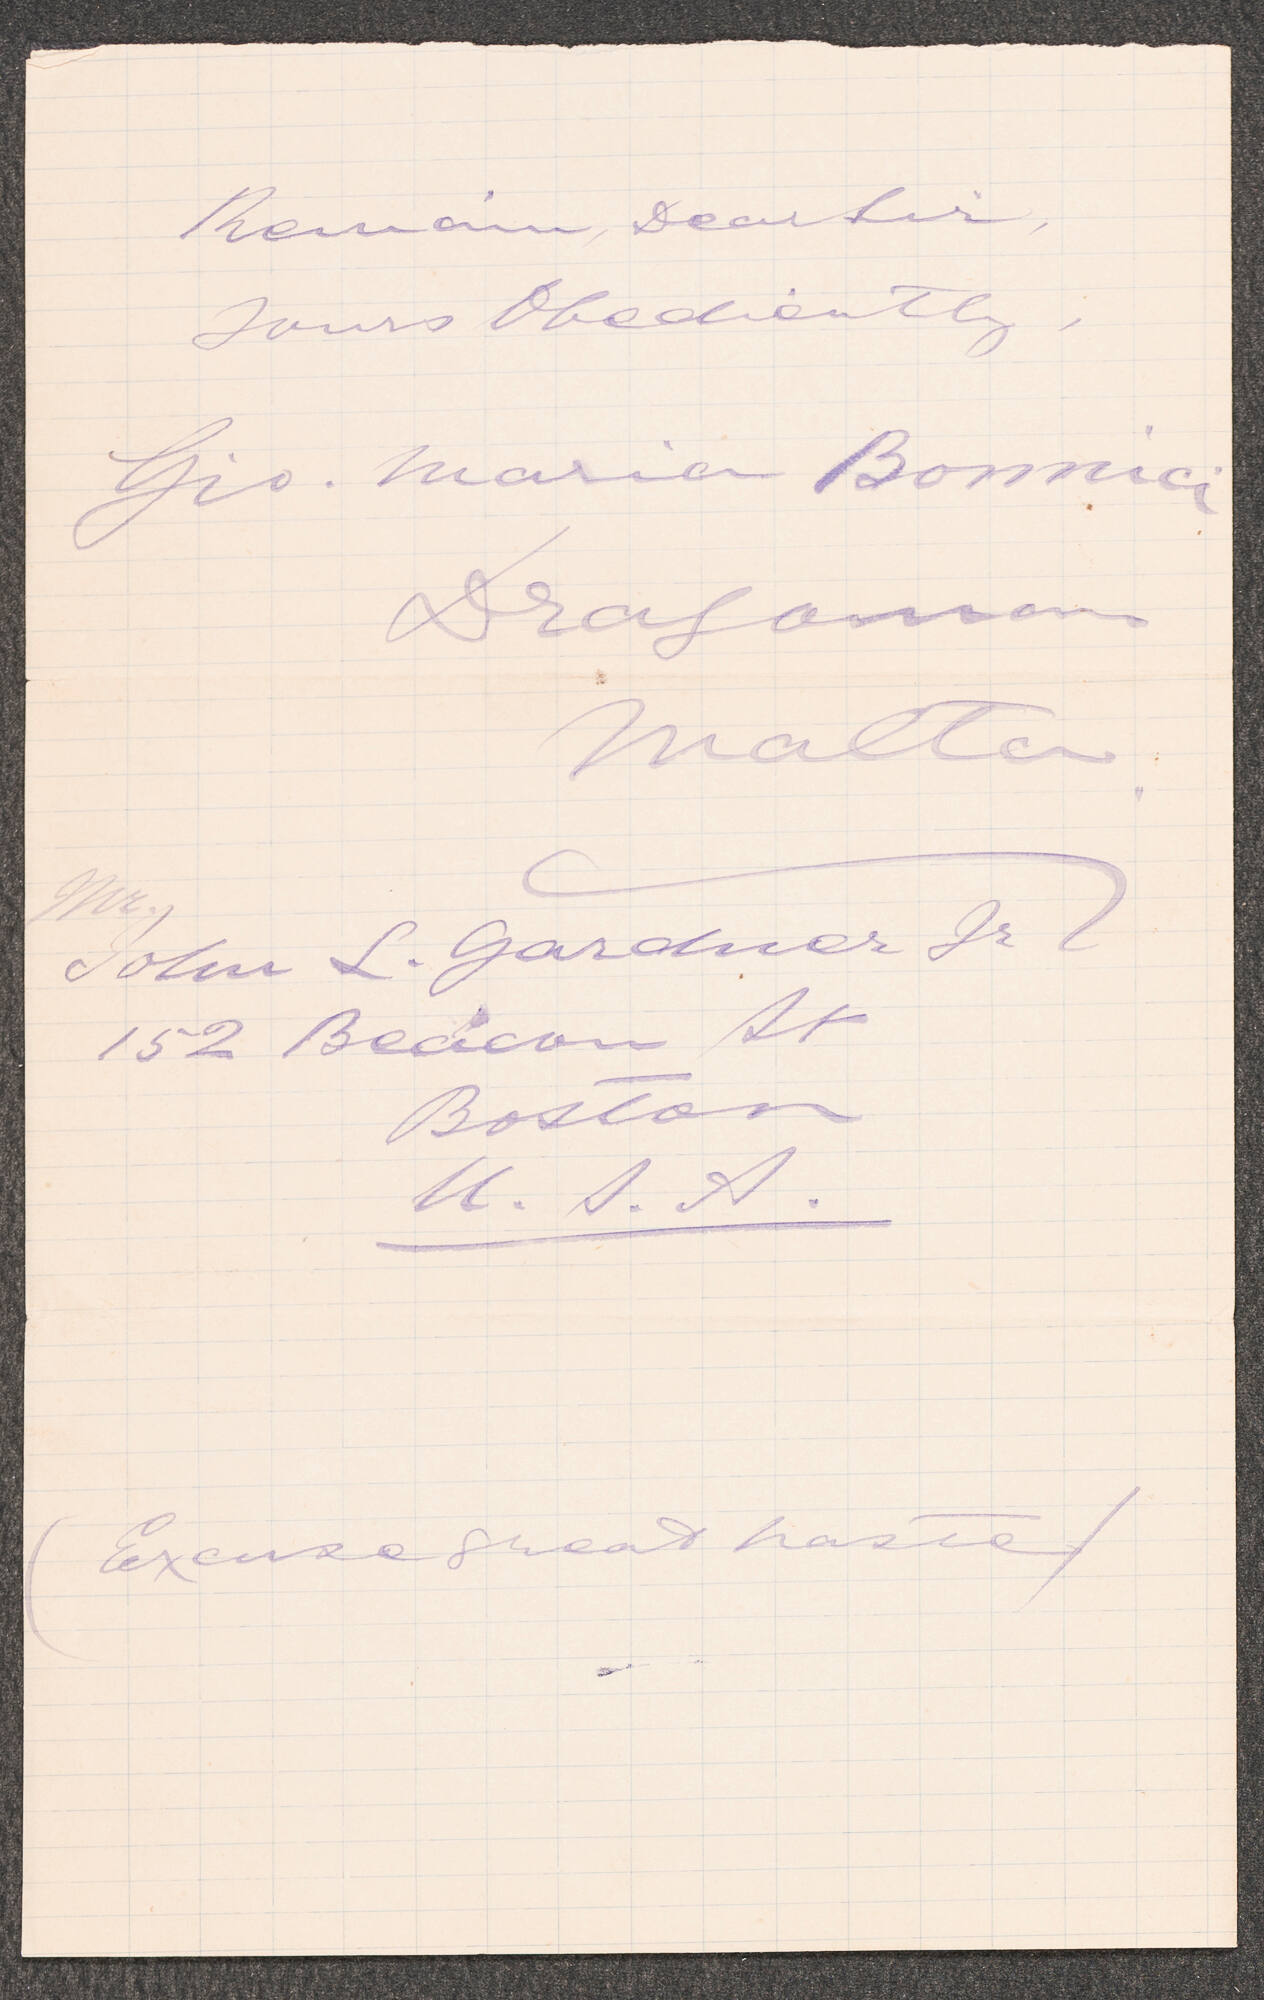 Remain, Dear Sir,
Yours Obediently,
Gio. Maria Bonnici
Dragoman
Malta.
Mr.
John L. Gardner Jr
152 Beacon St
Boston
U. S. A.
(Excuse great haste)